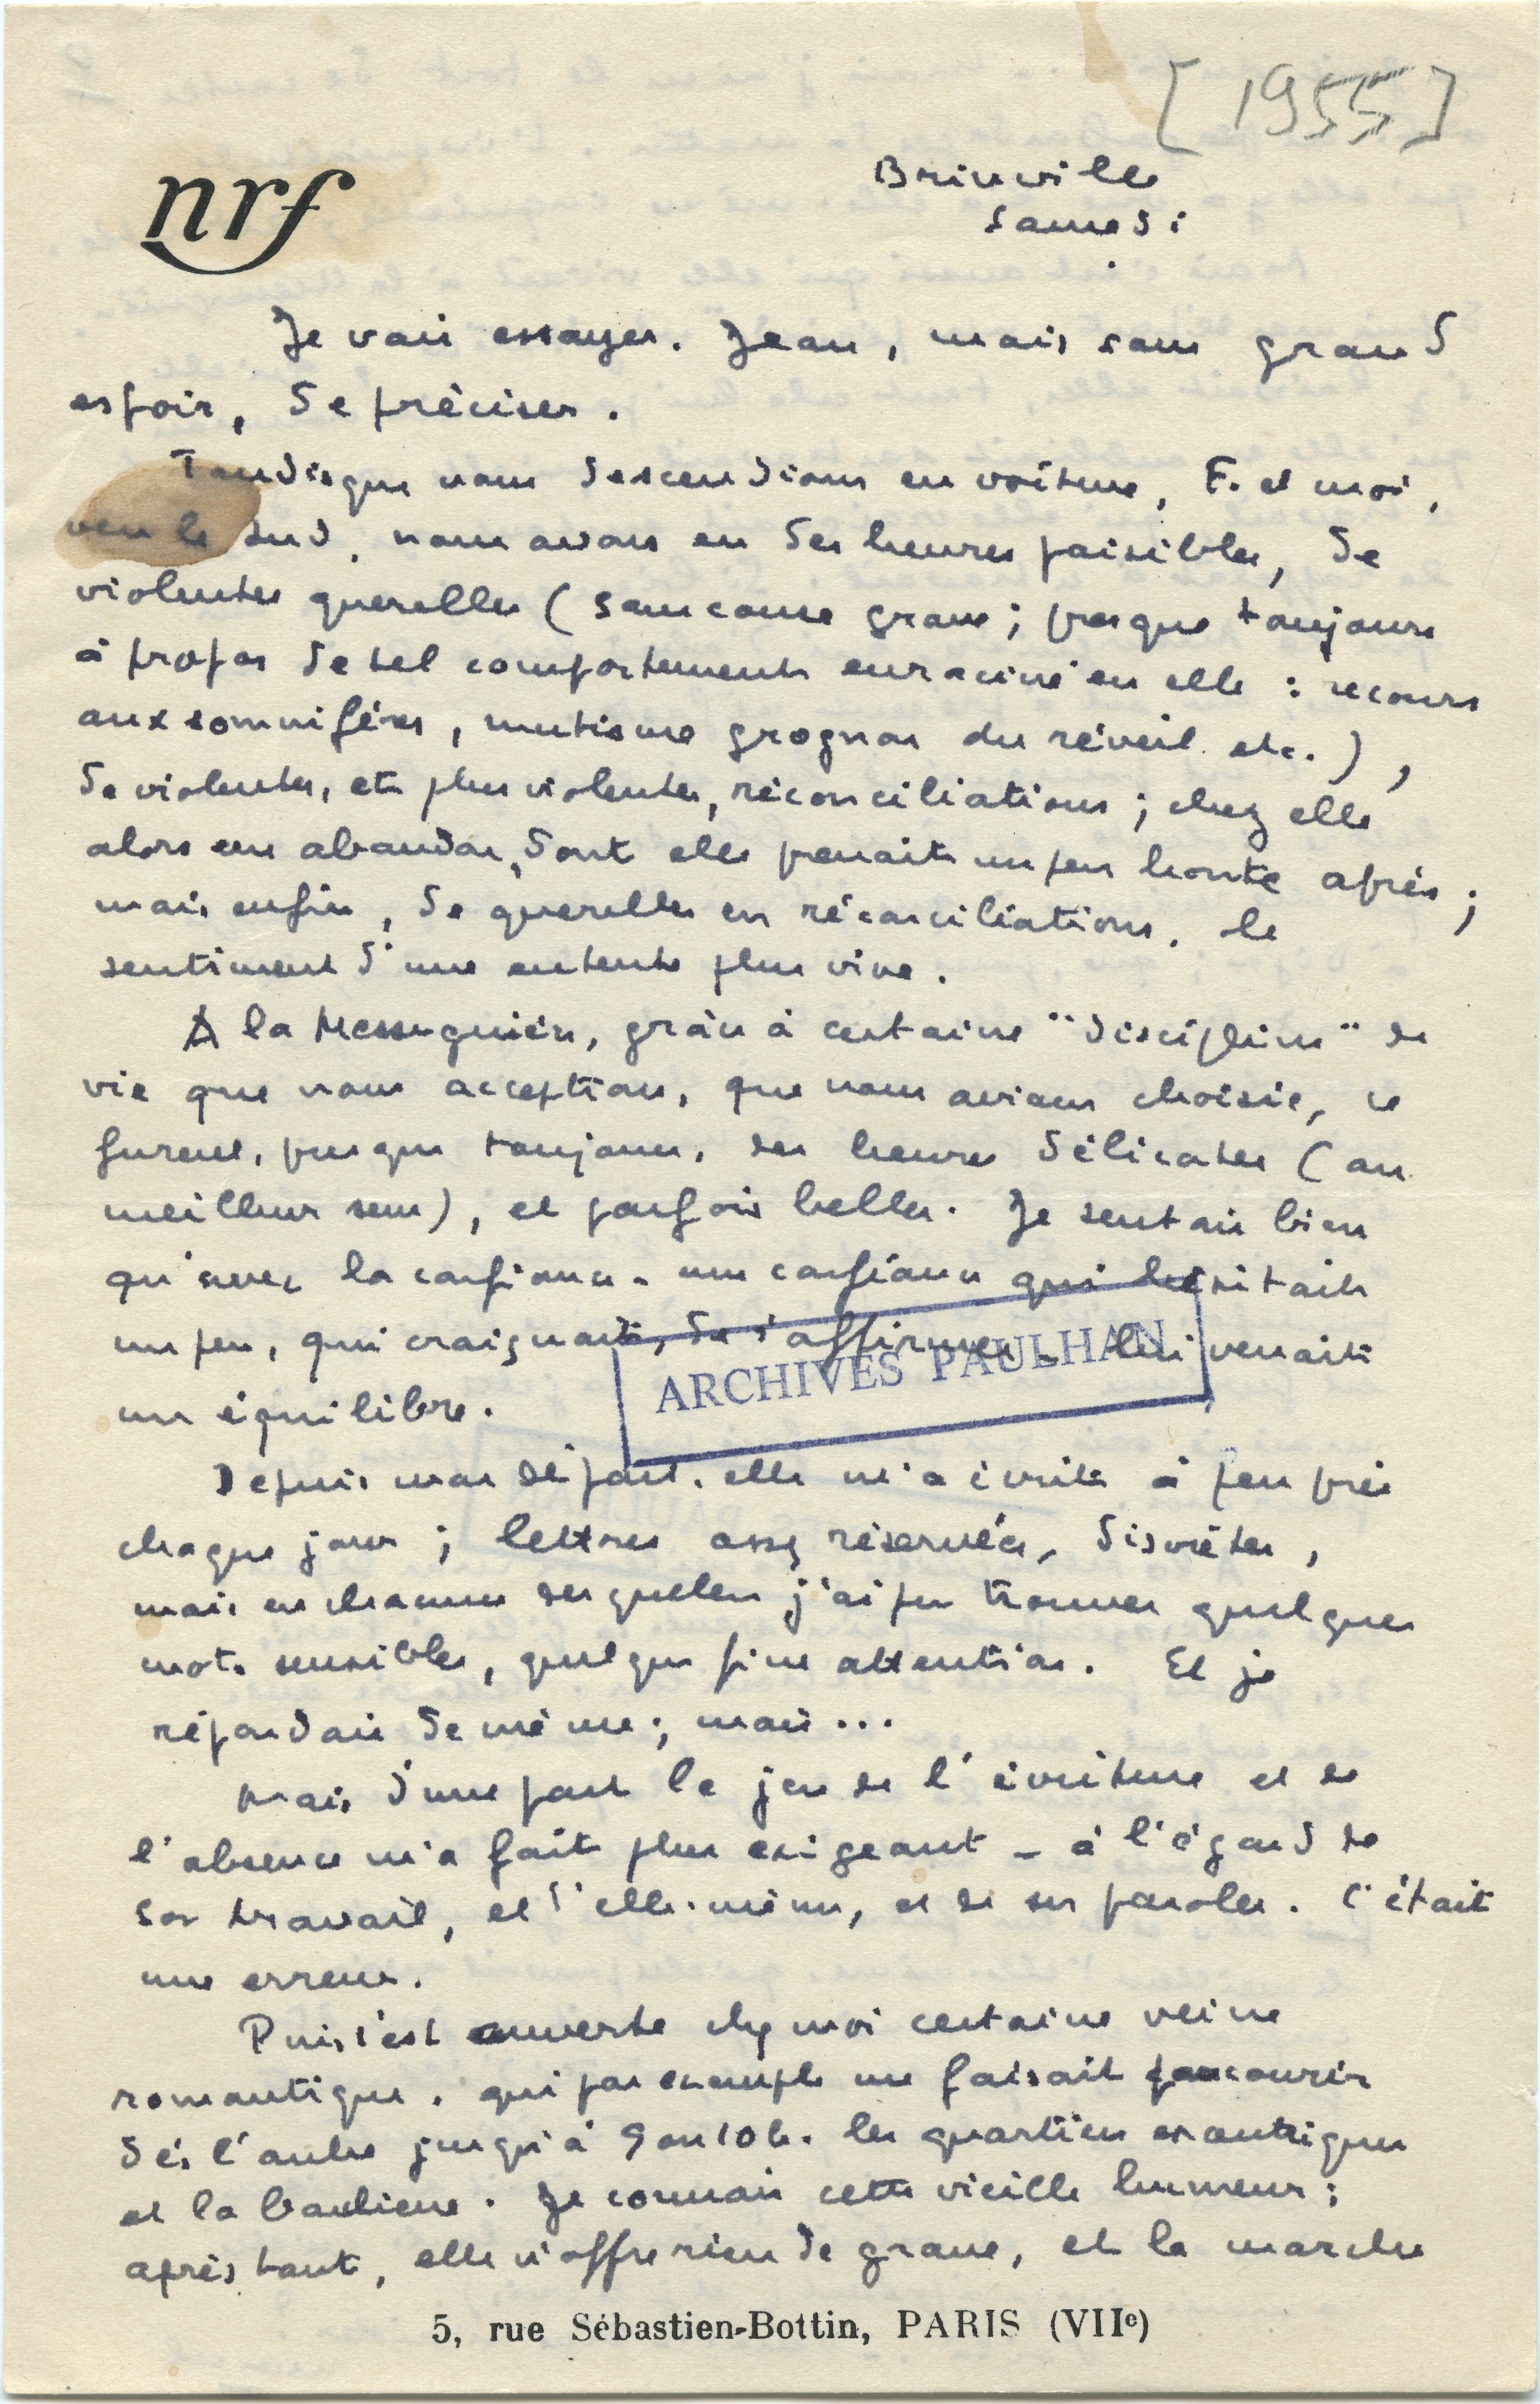 [1955]
nrf
Brinville
samedi
Je vais essayer, Jean, mais sans grand
espoir, de préciser.
Tandis que nous descendions en voiture, F. et moi,
vers le sud, nous avons eu des heures paisibles, de
violentes querelles (sans cause grave ; presque toujours
à propos de tel comportement enraciné en elle : recours
aux somnifères, mutisme grognon du réveil etc.),
de violentes, et plus violentes, réconciliations ; chez elle
alors un abandon, dont elle prenait un peu honte après ;
mais enfin, de querelles en réconciliations, le
sentiment d'une entente plus vive.
A la Messuguière, grâce à certaine "discipline" de
vie que nous acceptions, que nous avions choisie, ce
furent, presque toujours, des heures délicates (au
meilleur sens), et parfois belles. Je sentais bien
qu'avec la confiance - une confiance qui hésitait
un peu, qui craignait, de s'affirmer - lui venait
un équilibre.
ARCHIVES PAULHAN
Depuis mon départ, elle m'a écrit à peu près
chaque jour ; lettres assez réservées, discrètes,
mais en chacune desquelles j'ai pu trouver quelques
mots sensibles, quelque fine attention. Et je
répondais de même ; mais ...
Mais d'une part le jeu de l'écriture et de
l'absence m'a fait plus exigeant - à l'égard de
son travail, et d'elle-même, et de ses paroles. C'était
une erreur.
Puis s'est ouverte chez moi certaine veine
romantique, qui par exemple me faisait parcourir
dès l'aube jusqu'à 9 ou 10 h. les quartiers exotiques
et la banlieue. Je connais cette vieille humeur ;
après tout, elle n'offre rien de grave, et la marche
5, rue Sébastien-Bottin, PARIS (VIIe)